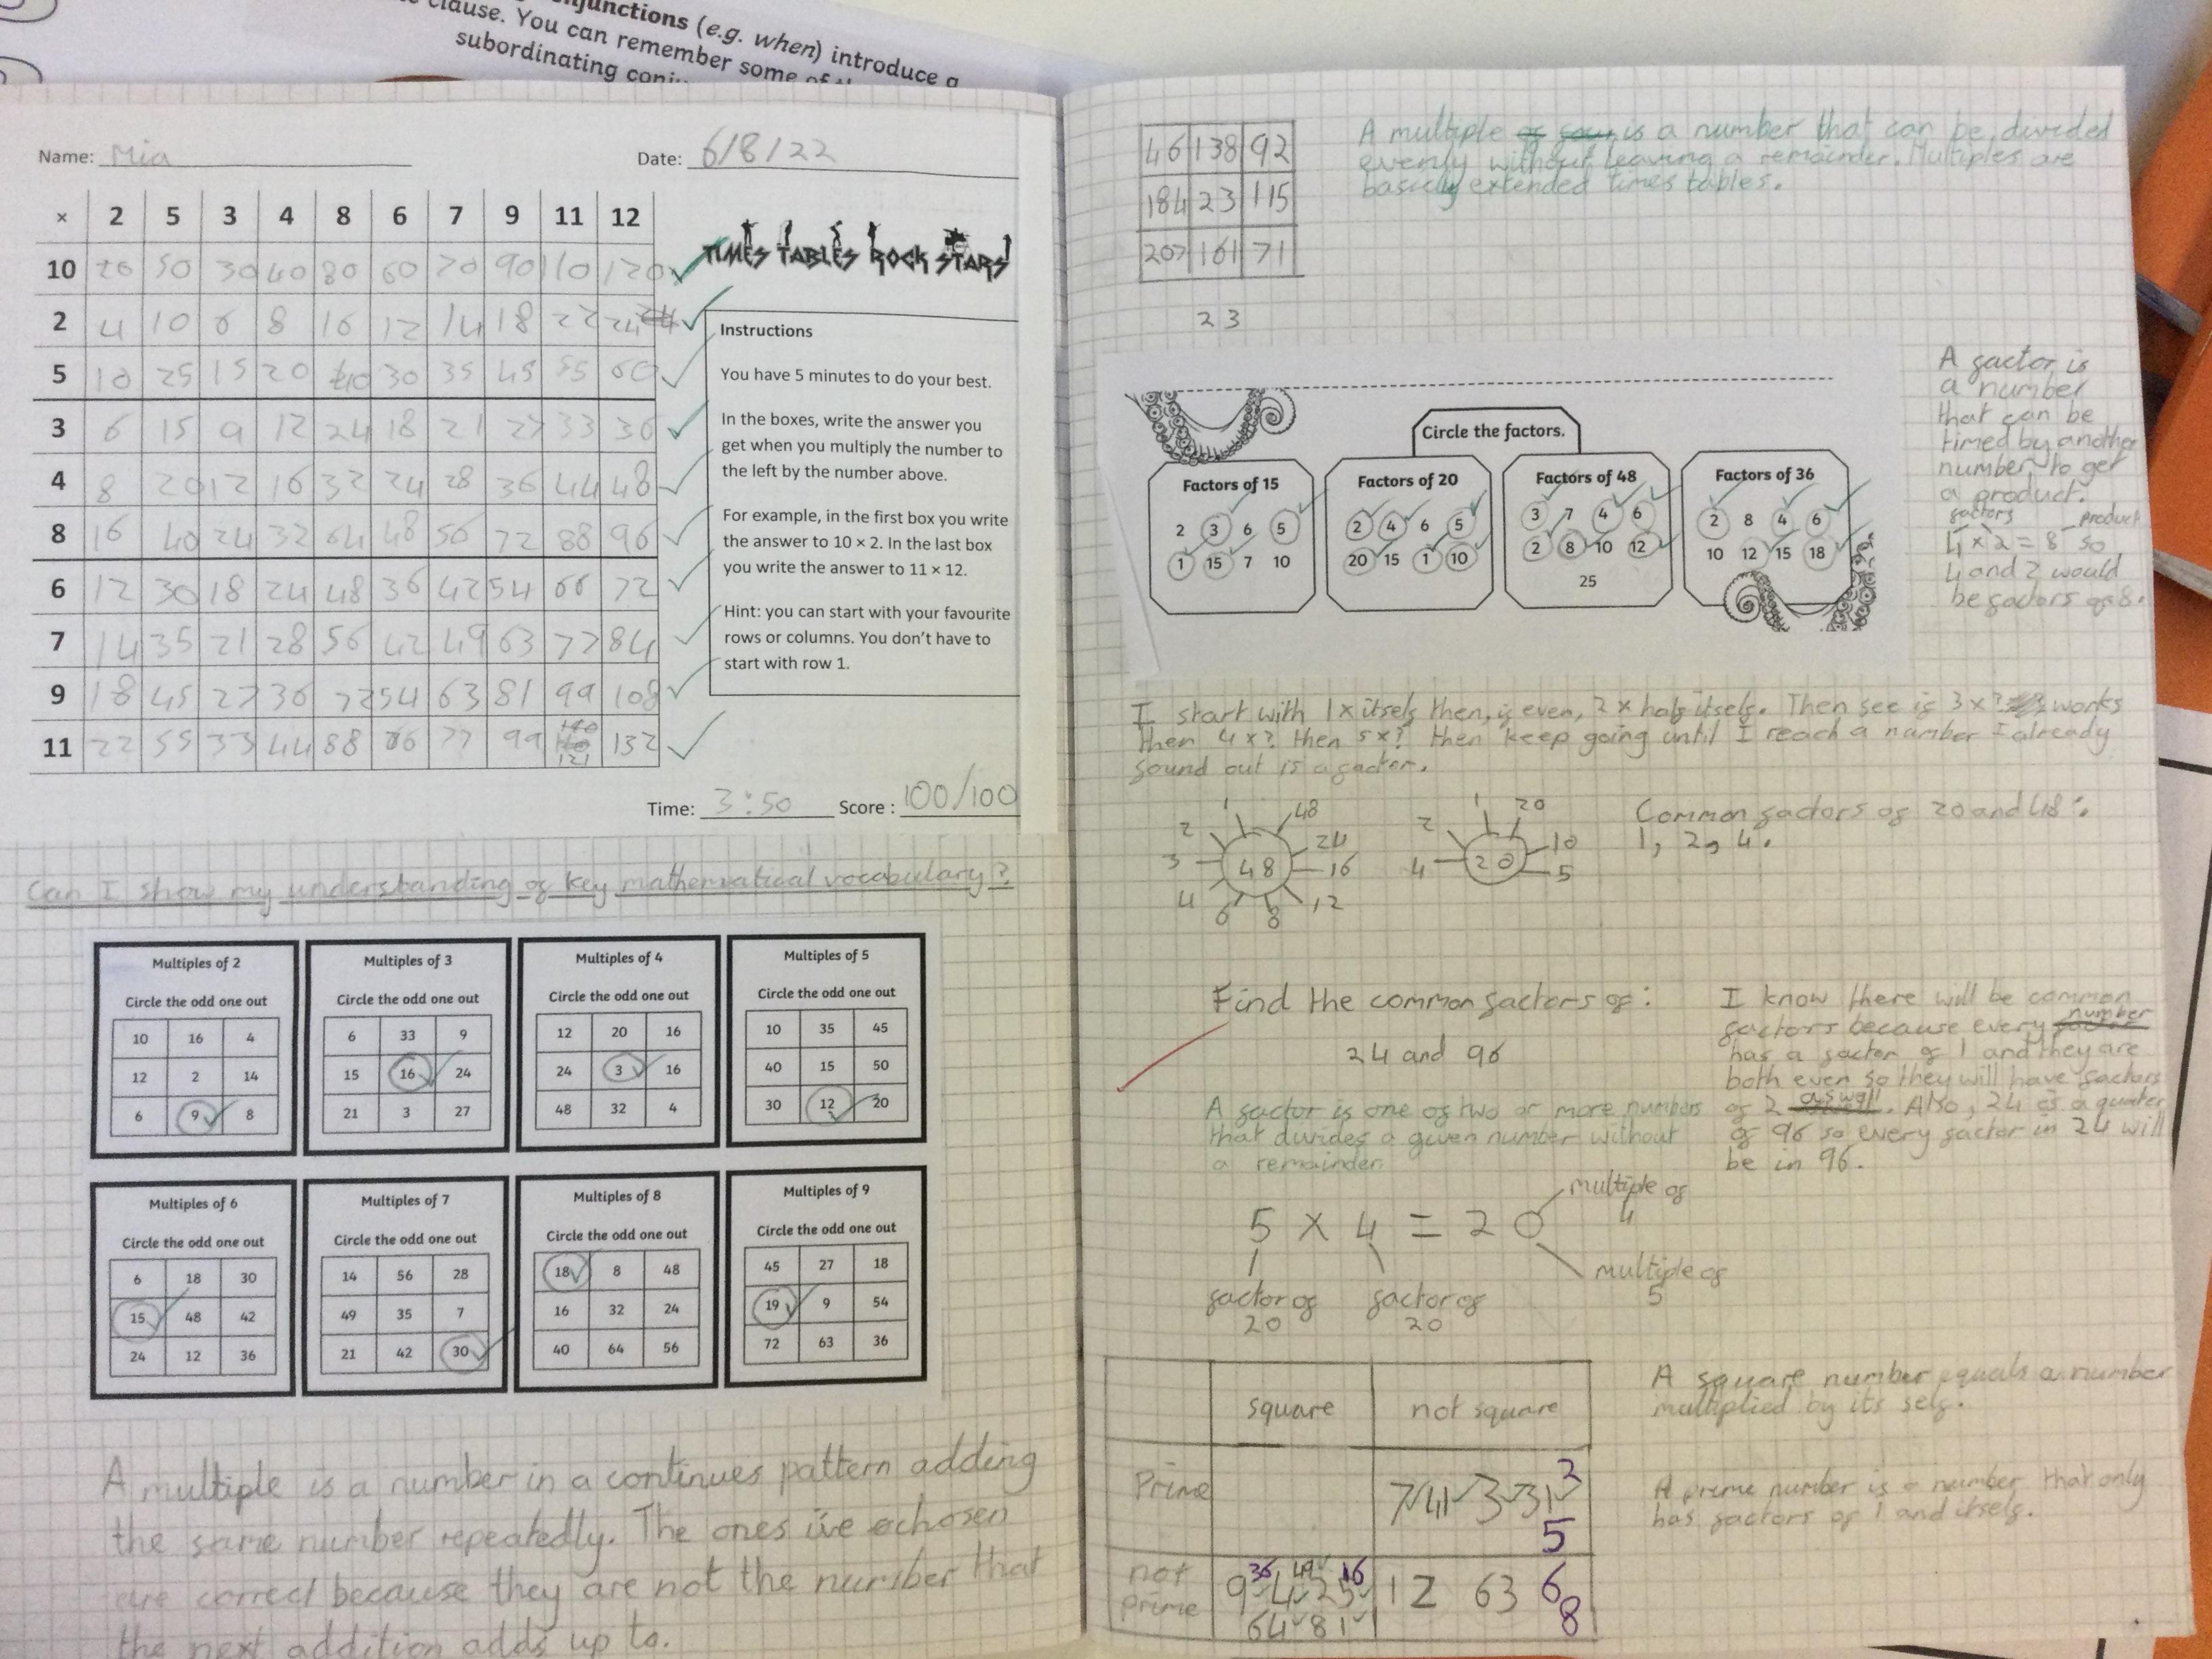 conjunctions (e.g. when) introduce a
clause. You can remember some of
subordinating
Name: Mia
Date: 6/8/22
× 2 5 3 4 8 6 7 9 11 12
10 20 50 30 40 80 60 70 90 110 120
2 4 10 6 8 16 12 14 18 22 24
5 10 25 15 20 40 30 35 45 55 60
3 6 15 9 12 24 18 21 27 33 36
4 8 20 12 16 32 24 28 36 44 48
8 16 40 24 32 64 48 56 72 88 96
6 12 30 18 24 48 36 42 54 66 72
7 14 35 21 28 56 42 49 63 77 84
9 18 45 27 36 72 54 63 81 99 108
11 22 55 33 44 88 66 77 99 121 132
TIMES TABLES ROCK STARS
Instructions
You have 5 minutes to do your best.
In the boxes, write the answer you
get when you multiply the number to
the left by the number above.
For example, in the first box you write
the answer to 10 × 2. In the last box
you write the answer to 11 × 12.
Hint: you can start with your favourite
rows or columns. You don't have to
start with row 1.
Time: 3:50 Score : 100/100
Can I show my understanding of key mathematical vocabulary?
Multiples of 2
Circle the odd one out
10 16 4
12 2 14
6 9 8
Multiples of 3
Circle the odd one out
6 33 9
15 16 24
21 3 27
Multiples of 4
Circle the odd one out
12 20 16
24 3 16
48 32 4
Multiples of 5
Circle the odd one out
10 35 45
40 15 50
30 12 20
Multiples of 6
Circle the odd one out
6 18 30
15 48 42
24 12 36
Multiples of 7
Circle the odd one out
14 56 28
49 35 7
21 42 30
Multiples of 8
Circle the odd one out
18 8 48
16 32 24
40 64 56
Multiples of 9
Circle the odd one out
45 27 18
19 9 54
72 63 36
A multiple is a number in a continues pattern adding
the same number repeatedly. The ones i've chosen
are correct because they are not the number that
the next addition adds up to.
46 138 92
184 23 115
207 161 71
23
A multiple of is a number that can be divided
evenly without leaving a remainder. Multiples are
basicly extended times tables.
Circle the factors.
Factors of 15
2 3 6 5
1 15 7 10
Factors of 20
2 4 6 5
20 15 1 10
Factors of 48
3 7 4 6
2 8 10 12
25
Factors of 36
2 8 4 6
10 12 15 18
A factor is
a number
that can be
timed by another
number to get
a product.
factors product
4 x 2 = 8 so
4 and 2 would
be factors of 8.
I start with 1 x itself then, if even, 2 x half itself. Then see if 3 x ? works
then 4 x ? then 5 x ? then keep going until I reach a number I already
found out is a factor.
1 48
2 24
3 48 16
4 12
6 8
1 20
2 10
4 20 5
Common factors of 20 and 48:
1, 2, 4.
Find the common factors of:
24 and 96
A factor is one of two or more numbers
that divides a given number without
a remainder
I know there will be common
factors because every number
has a factor of 1 and they are
both even so they will have factors
of 2 as well. Also, 24 is a quarter
of 96 so every factor in 24 will
be in 96.
multiple of
4
5 x 4 = 20
multiple of
5
factor of
20
factor of
20
square not square
Prime 7 41 3 31 2
5
not
prime
36 49 16
9 4 25 12 63 6
64 81 8
A square number equals a number
multiplied by its self.
A prime number is a number that only
has factors of 1 and itself.